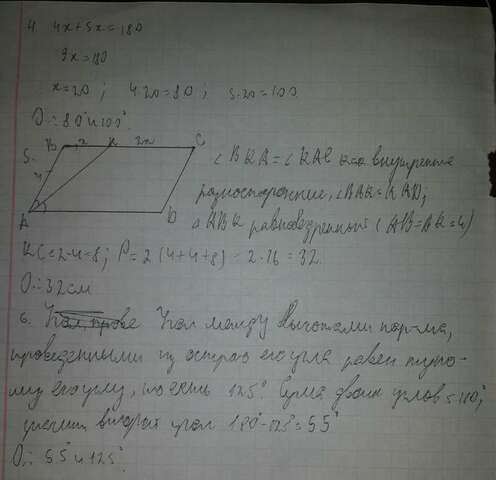 4. 4x+5x=180
9x=180
x=20; 4·20=80; 5·20=100
O.: 80° и 100°.
B x K 2x C
A D
∠BKA = ∠KAD как внутренние
разносторонние, ∠BAK = KAD;
ABK равнобедренный (AB=AK=4)
KC=2·4=8; P=2(4+4+8)=2·16=32.
O.: 32 см
6. Угол между высотами пар-ма,
проведенными из острого его угла равен тупо-
му его углу, то есть 125°. Сумма двух углов = 180°,
значит второй угол 180°-125°=55°
O.: 55 и 125°